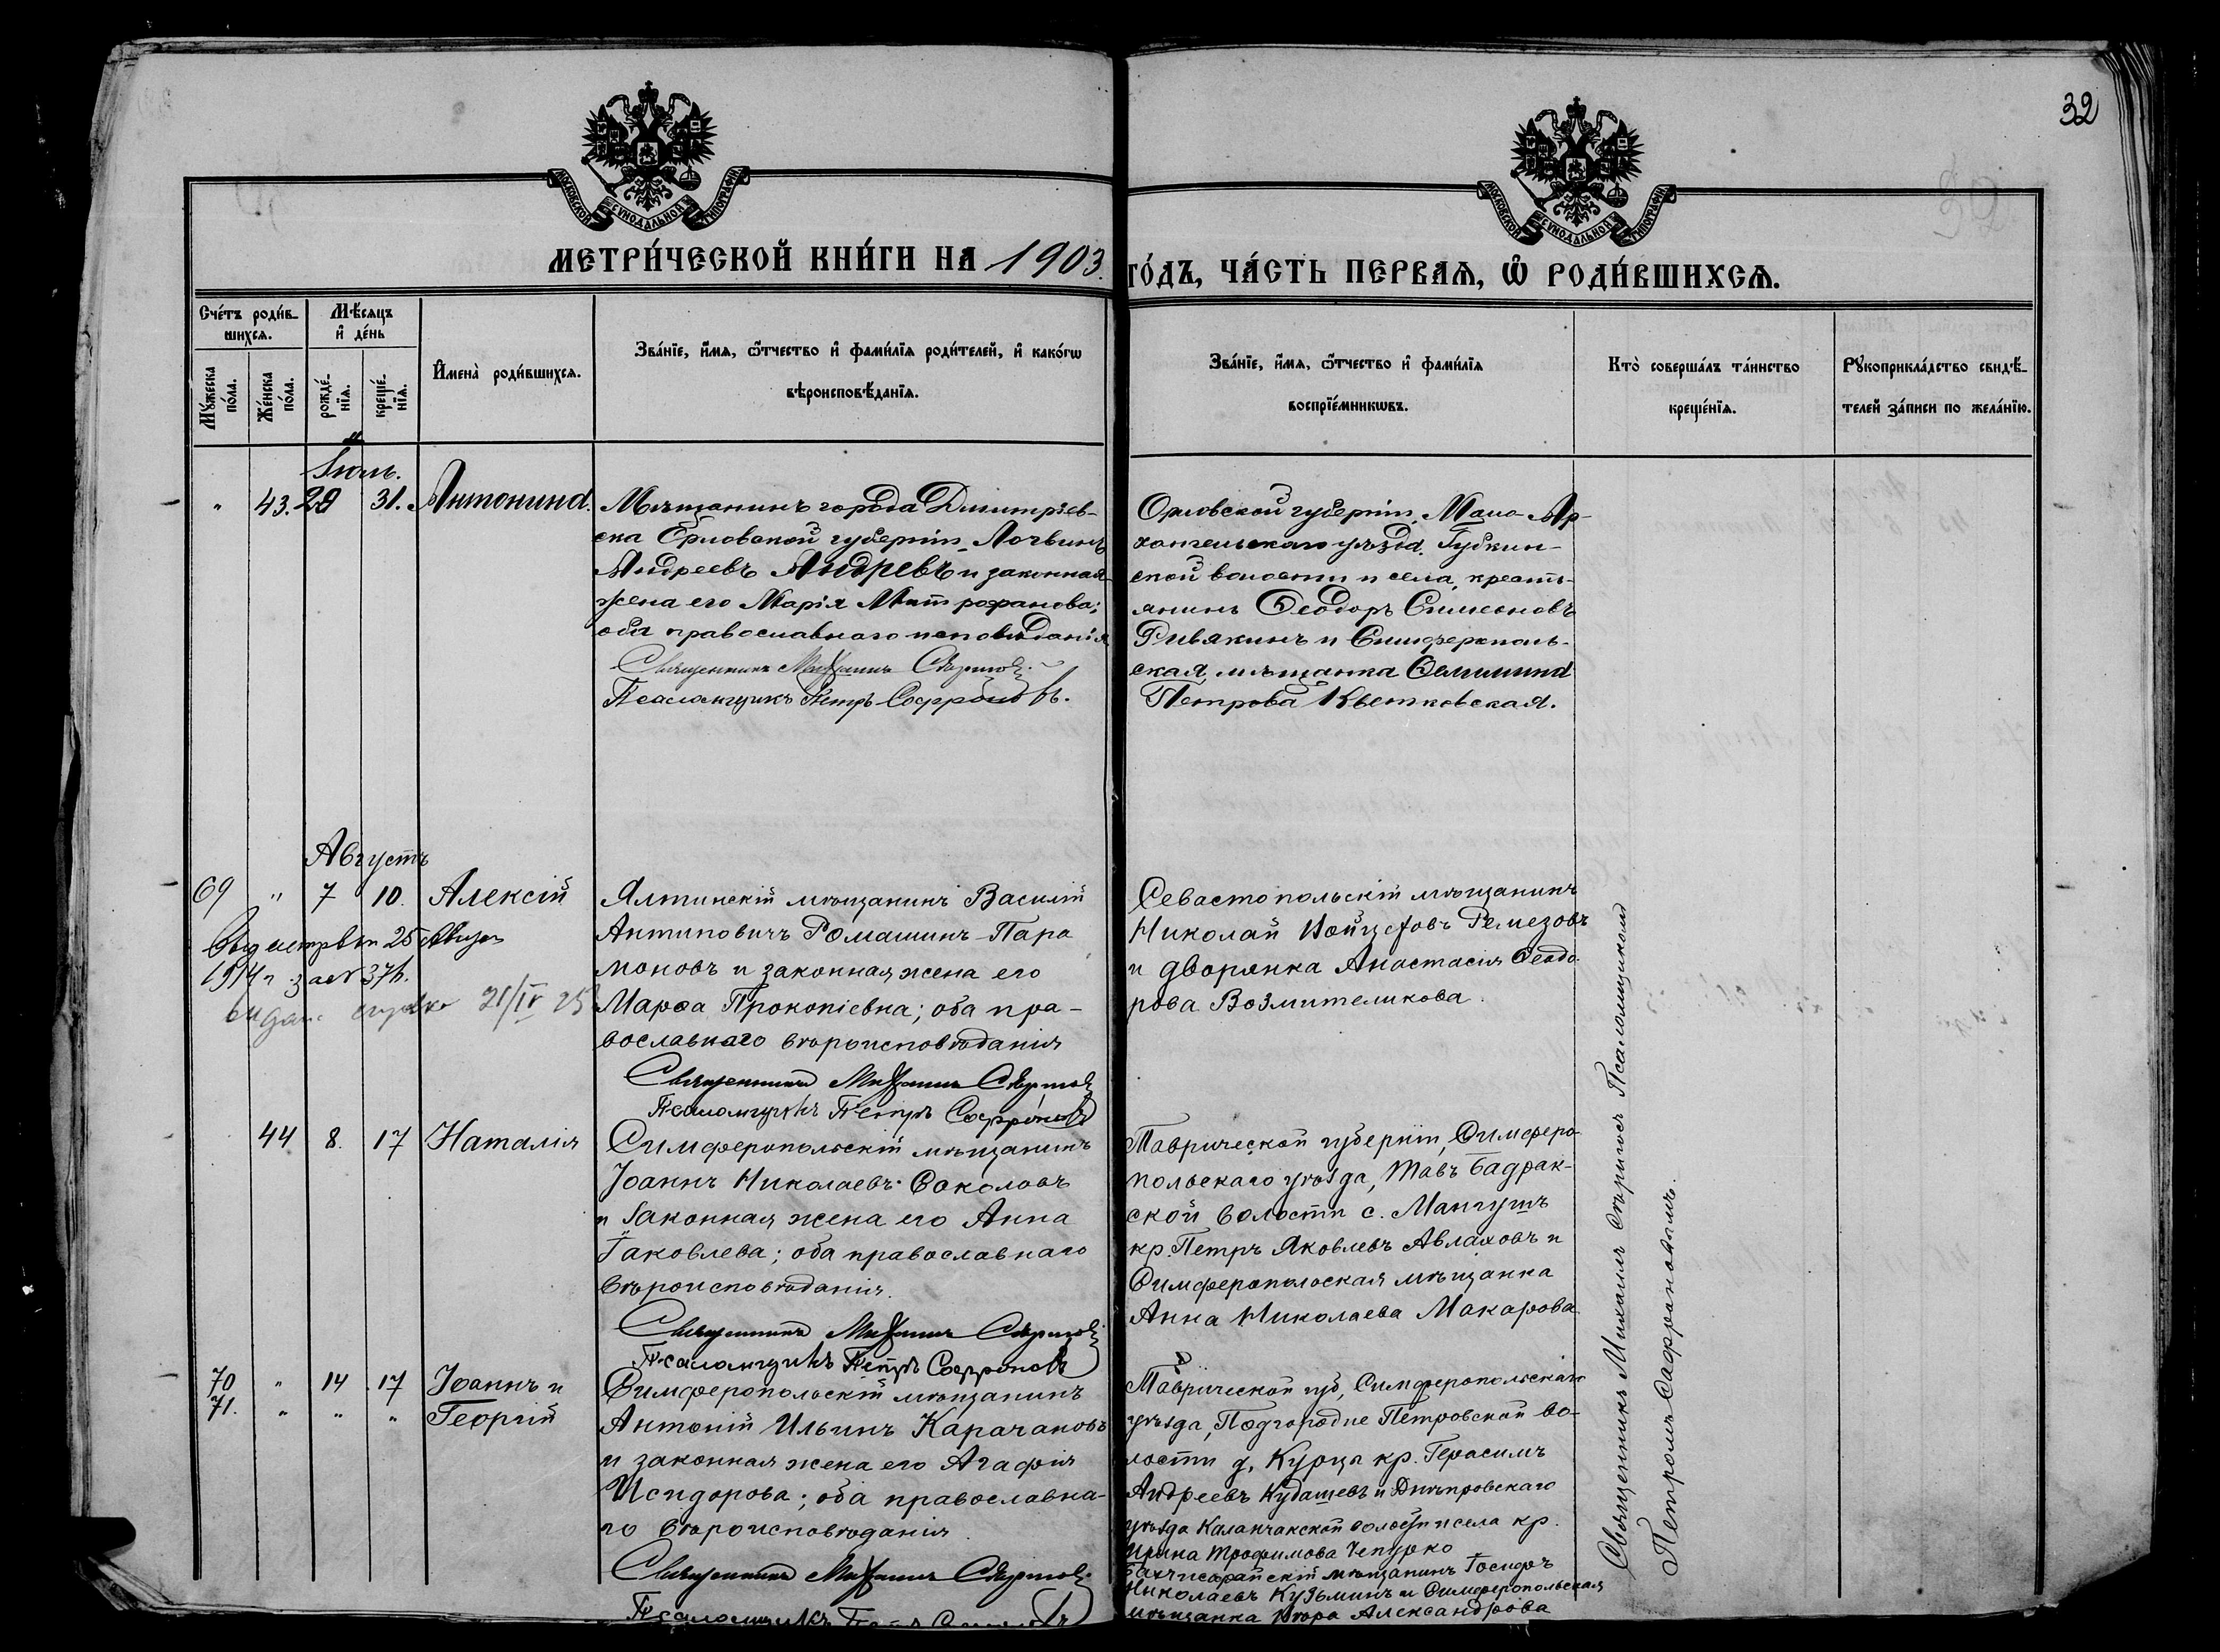 32
МОСКОВСКОЙ СѴНОДАЛЬНОЙ ТИПОГРАФІИ
МОСКОВСКОЙ СѴНОДАЛЬНОЙ ТИПОГРАФІИ
МЕТРИ́ЧЕСКОЙ КНИ́ГИ НА 1903.
ГО́ДЪ, ЧА́СТЬ ПЕРВАЯ, Ѡ РОДИ́ВШИХСЯ.
Сче́тъ роди́в-
шихся.
Мѣсяцъ
и де́нь
Мꙋжеска
по́ла.
Же́нска
по́ла.
рожде́-
нїя.
креще́-
нїя.
Имена̀ роди́вшихся.
Зва́нїе, и́мя, ѻ́тчество и фами́лїя роди́телей, и како́гѡ
вѣроисповѣ́данїя.
Зва́нїе, и́мя, ѻ́тчество и фами́лїя
воспрїе́мникѡвъ.
Кто̀ соверша́лъ та́инство
креще́нїя.
Рꙋкоприкла́дство свидѣ́-
телей за́писи по жела́нїю.
Іюль.
" 43. 29 31. Антонина.
Мѣщанинъ города Димитріев-
ска Орловской губерніи, Логвинъ
Андреевъ Андревъ и законная
жена его Марія Митрофанова;
оба православнаго исповѣданія
Священникъ Михаилъ
Псаломщикъ Петръ Софроновъ.
Орловской губерніи, Мало-Ар-
хангельскаго уѣзда, Губкин-
ской волости и села, кресть-
янинъ Ѳеодоръ Симеоновъ
Ривякинъ и Симферополь-
ская мѣщанка
Петрова Квятковская.
Августъ
69 " 7 10. Алексій
25
1914 г. за № 376.
21/IV 25
Ялтинскій мѣщанинъ Василій
Антиповичъ Ромашинъ-Пара
моновъ и законная жена его
Марѳа Прокопіевна; оба пра-
вославнаго вѣроисповѣданія
Священникъ Михаилъ
Псаломщикъ Петръ Софроновъ
Севастопольскій мѣщанинъ
Николай Ремезовъ
и дворянка Анастасія Ѳеодо-
рова Возмителикова.
44 8. 17 Наталія
Симферопольскій мѣщанинъ
Іоаннъ Николаевъ Соколовъ
и законная жена его Анна
Іаковлева; оба православнаго
вѣроисповѣданія.
Священникъ Михаилъ
Псаломщикъ Петръ Софроновъ
Таврической губерніи, Симферо-
польскаго уѣзда, Тавъ Бадрак-
ской волости с. Мангушъ
кр. Петръ Яковлевъ Авлаховъ и
Симферополская мѣщанка
Анна Николаева Макарова
70 " 14 17 Іоаннъ и
71. " " " Георгій
Симферопольскій мѣщанинъ
Антоній Ильинъ Карачановъ
и законная жена его Агафія
Исидорова; оба православна-
го вѣроисповѣданія.
Священникъ Михаилъ
Псаломщикъ
Таврической губ, Симферопольскаго
уѣзда, Подгородне Петровской во-
лости д. Курцы кр. Герасимъ
Андреевъ Кудашевъ и Днѣпровскаго
уѣзда Каланчакской волости и села кр.
Ирина Трофимова Чепурко
Бахчисарайскій мѣщанинъ Іосифъ
Николаевъ Кузьминъ и Симферопольская
мѣщанка Александрова
Священникъ Михаилъ съ Псаломщикомъ
Петромъ Софроновымъ.